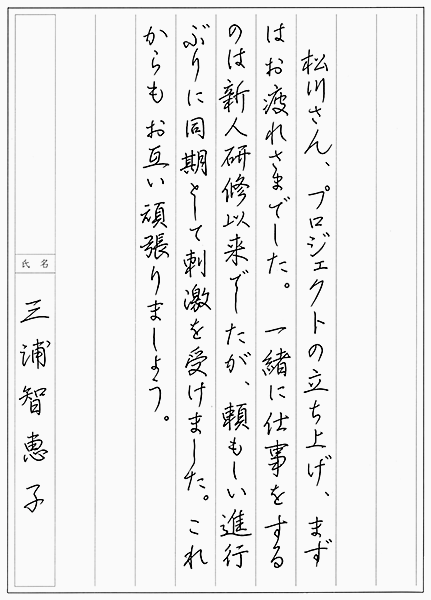 松川さん、プロジェクトの立ち上げ、まず
はお疲れさまでした。一緒に仕事をする
のは新人研修以来でしたが、頼もしい進行
ぶりに同期として刺激を受けました。これ
からもお互い頑張りましょう。
氏名
三浦智恵子